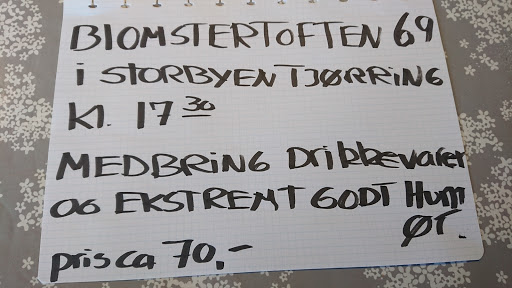 BLOMSTERTOFTEN 69
i STORBYEN TJØRRING
Kl. 17 30
MEDBRING Drikkevarer
OG EKSTREMT GODT Hum
ØR.
pris ca 70,-